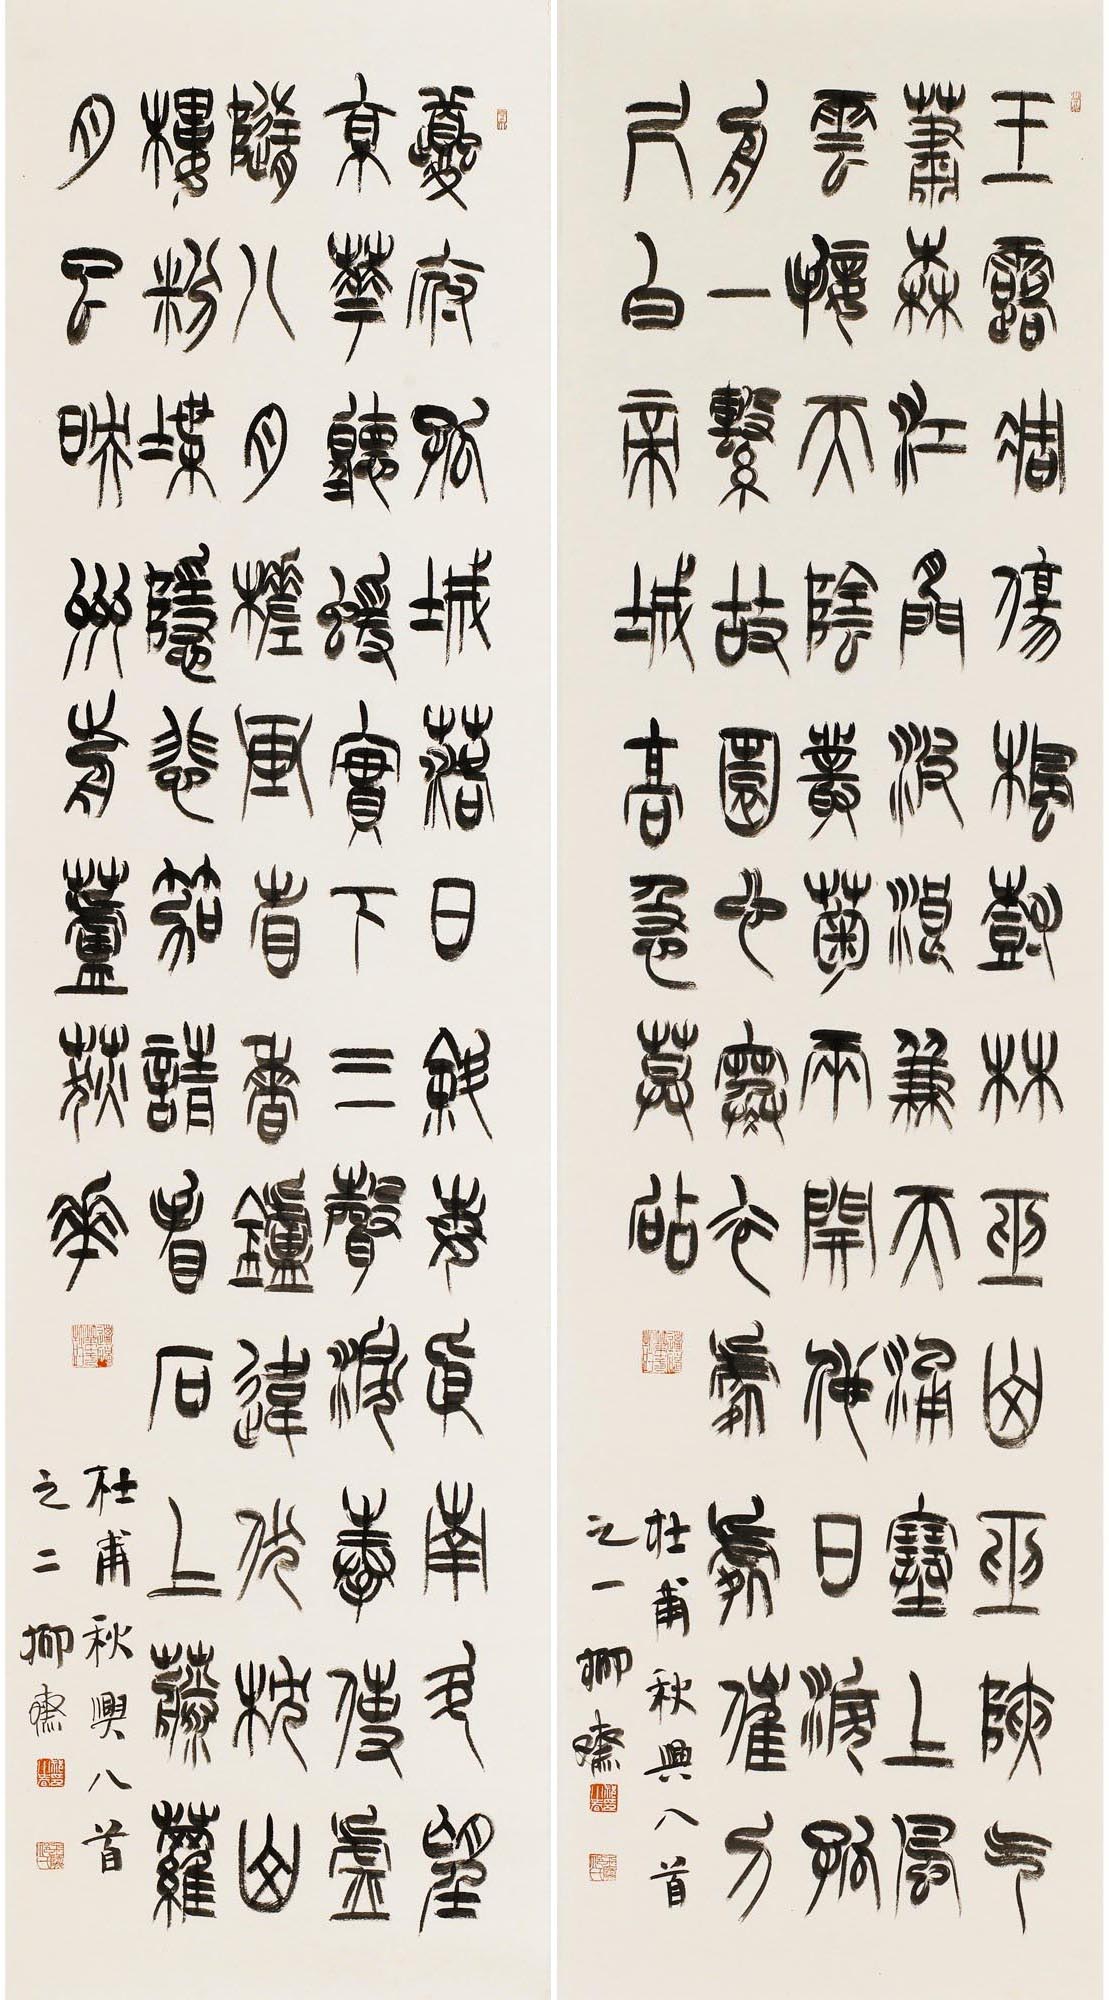 玉露凋傷楓樹林巫山巫陝气
蕭森江間波浪兼天涌塞上風
雲接天陰叢菊兩開他日淚孤
舟一繫故園心寒衣處處催刀
尺白帝城高急莫砧
杜甫秋興八首
之一
夔府孤城落日斜每依南斗望
京華聽猨實下三聲淚奉使虛
隨八月槎畫省香鑪違伏枕山
樓粉堞隱悲笳請看石上藤蘿
月已映州前蘆荻花
杜甫秋興八首
之二